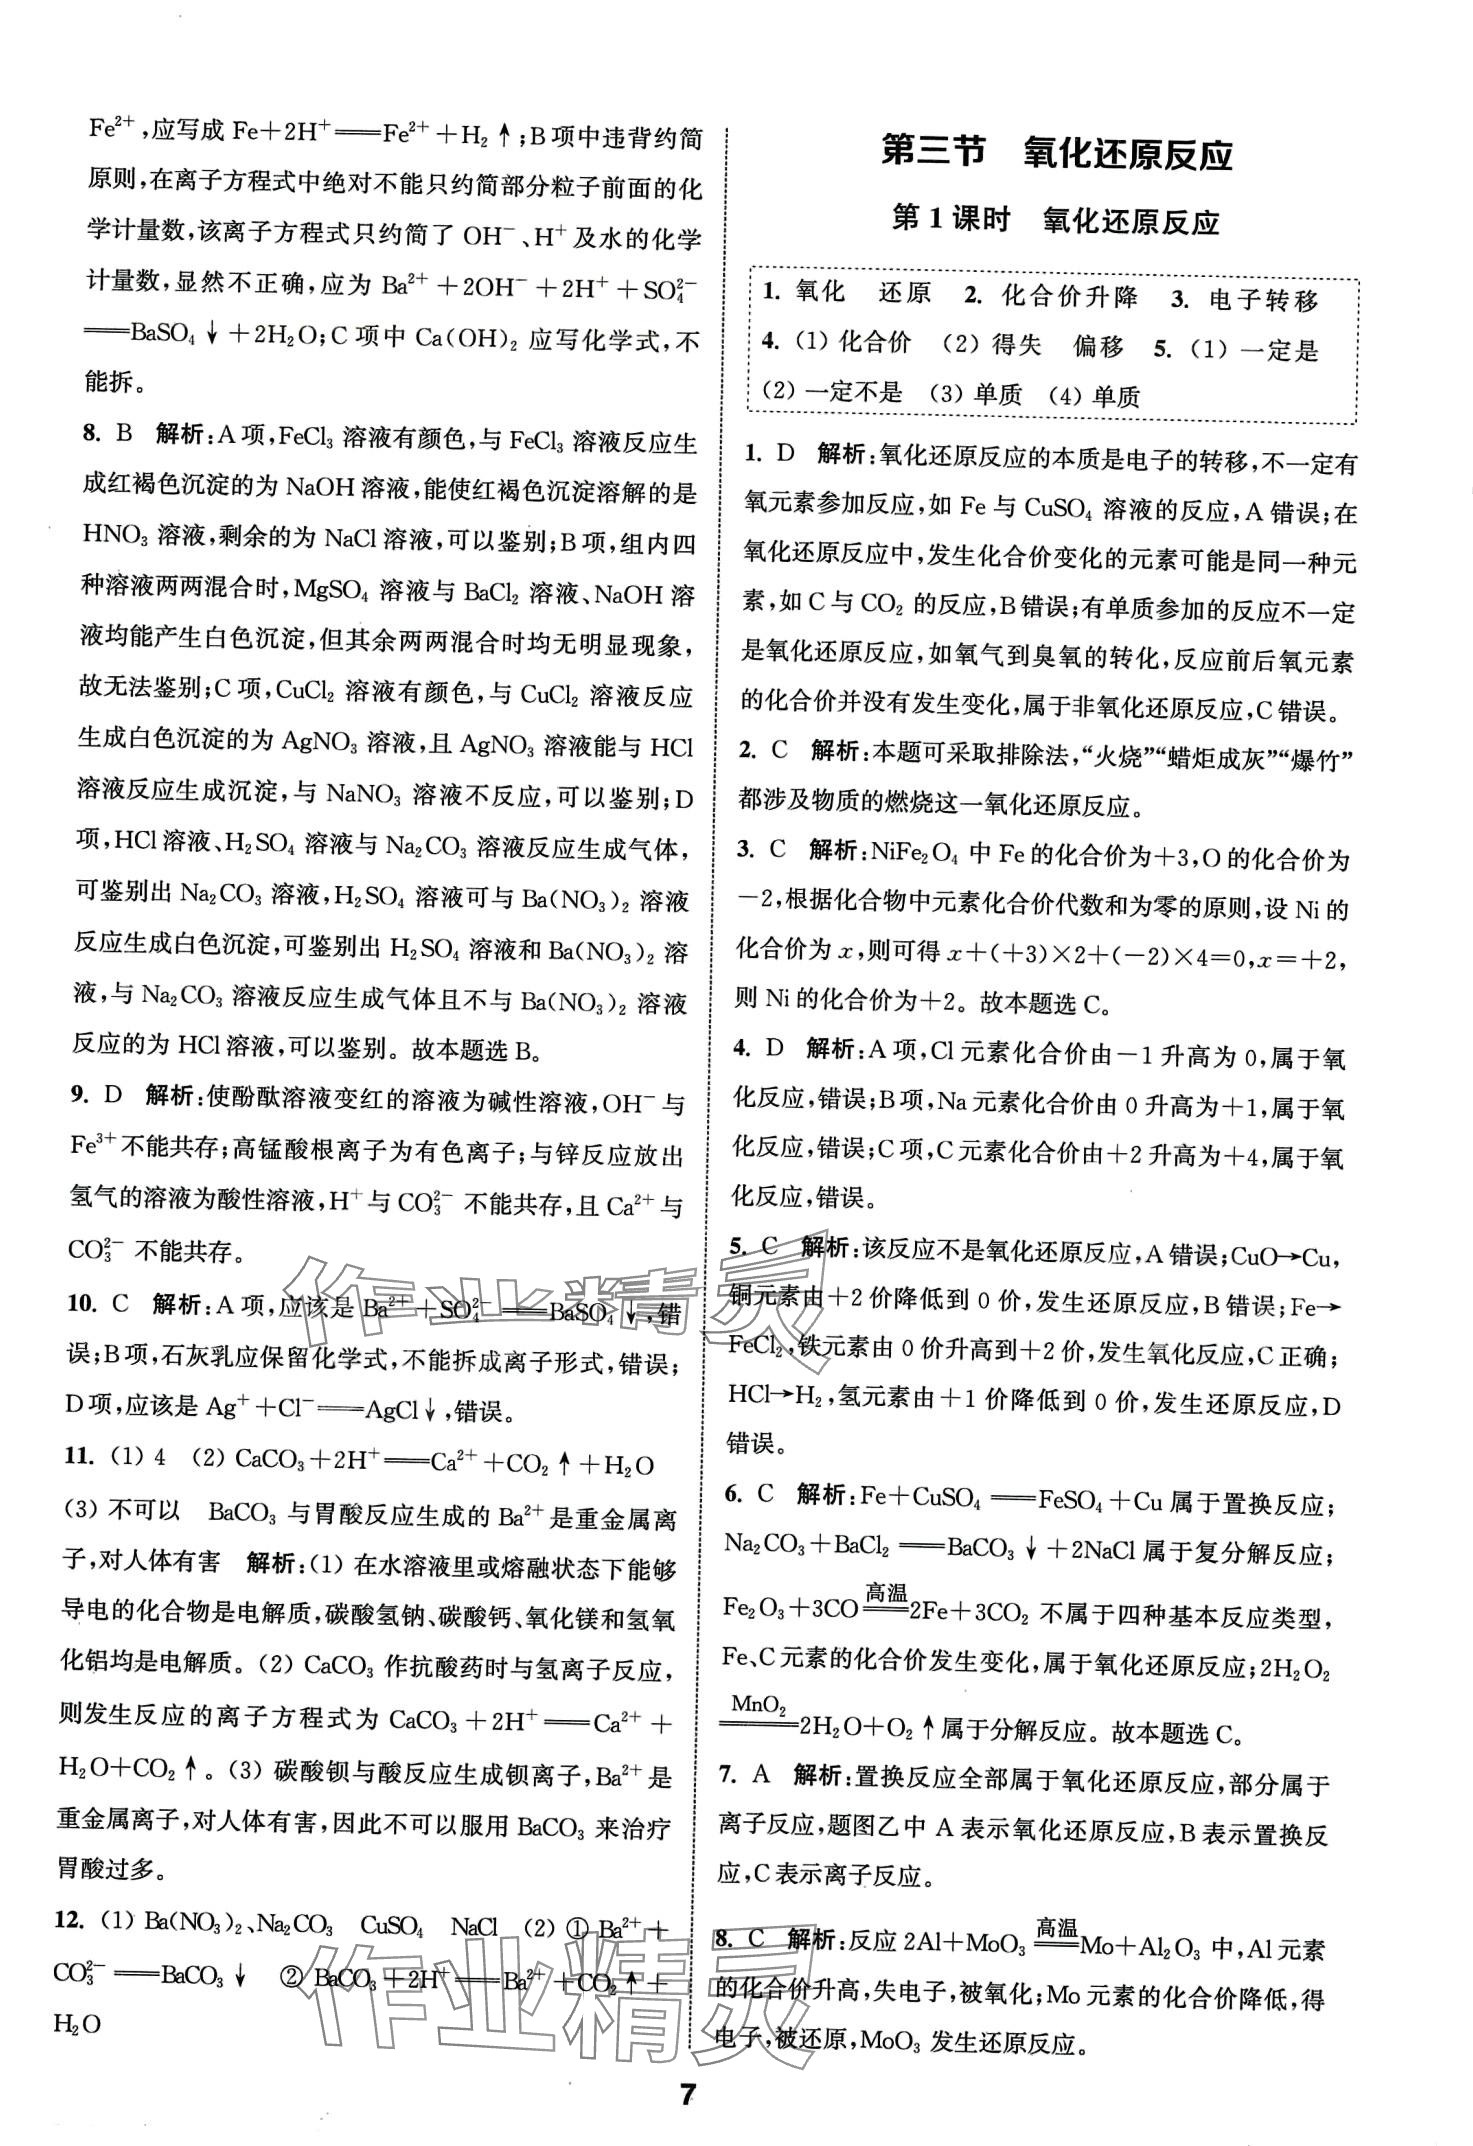 Fe²⁺,应写成 Fe+2H⁺══Fe²⁺+H₂↑;B项中违背约简
原则,在离子方程式中绝对不能只约简部分粒子前面的化
学计量数,该离子方程式只约简了 OH⁻、H⁺及水的化学
计量数,显然不正确,应为 Ba²⁺+2OH⁻+2H⁺+SO₄²⁻
══BaSO₄↓+2H₂O;C项中 Ca(OH)₂ 应写化学式,不
能拆。
8. B 解析:A项,FeCl₃ 溶液有颜色,与 FeCl₃ 溶液反应生
成红褐色沉淀的为 NaOH 溶液,能使红褐色沉淀溶解的是
HNO₃ 溶液,剩余的为 NaCl 溶液,可以鉴别;B项,组内四
种溶液两两混合时,MgSO₄ 溶液与 BaCl₂ 溶液、NaOH 溶
液均能产生白色沉淀,但其余两两混合时均无明显现象,
故无法鉴别;C项,CuCl₂ 溶液有颜色,与 CuCl₂ 溶液反应
生成白色沉淀的为 AgNO₃ 溶液,且 AgNO₃ 溶液能与 HCl
溶液反应生成沉淀,与 NaNO₃ 溶液不反应,可以鉴别;D
项,HCl溶液、H₂SO₄ 溶液与 Na₂CO₃ 溶液反应生成气体,
可鉴别出 Na₂CO₃ 溶液,H₂SO₄ 溶液可与 Ba(NO₃)₂ 溶液
反应生成白色沉淀,可鉴别出 H₂SO₄ 溶液和 Ba(NO₃)₂ 溶
液,与 Na₂CO₃ 溶液反应生成气体且不与 Ba(NO₃)₂ 溶液
反应的为 HCl溶液,可以鉴别。故本题选B。
9. D 解析:使酚酞溶液变红的溶液为碱性溶液,OH⁻与
Fe³⁺不能共存;高锰酸根离子为有色离子;与锌反应放出
氢气的溶液为酸性溶液,H⁺与CO₃²⁻ 不能共存,且 Ca²⁺与
CO₃²⁻ 不能共存。
10. C 解析:A项,应该是 Ba²⁺+SO₄²⁻══BaSO₄↓,错
误;B项,石灰乳应保留化学式,不能拆成离子形式,错误;
D项,应该是 Ag⁺+Cl⁻══AgCl↓,错误。
11. (1) 4 (2) CaCO₃+2H⁺══Ca²⁺+CO₂↑+H₂O
(3) 不可以 BaCO₃ 与胃酸反应生成的 Ba²⁺是重金属离
子,对人体有害 解析:(1) 在水溶液里或熔融状态下能够
导电的化合物是电解质,碳酸氢钠、碳酸钙、氧化镁和氢氧
化铝均是电解质。(2) CaCO₃ 作抗酸药时与氢离子反应,
则发生反应的离子方程式为 CaCO₃+2H⁺══Ca²⁺+
H₂O+CO₂↑。(3) 碳酸钡与酸反应生成钡离子,Ba²⁺是
重金属离子,对人体有害,因此不可以服用 BaCO₃ 来治疗
胃酸过多。
12. (1) Ba(NO₃)₂、Na₂CO₃ CuSO₄ NaCl (2) ① Ba²⁺+
CO₃²⁻══BaCO₃↓ ② BaCO₃+2H⁺══Ba²⁺+CO₂↑+
H₂O
第三节 氧化还原反应
第1课时 氧化还原反应
1. 氧化 还原 2. 化合价升降 3. 电子转移
4. (1) 化合价 (2) 得失 偏移 5. (1) 一定是
(2) 一定不是 (3) 单质 (4) 单质
1. D 解析:氧化还原反应的本质是电子的转移,不一定有
氧元素参加反应,如 Fe 与 CuSO₄ 溶液的反应,A错误;在
氧化还原反应中,发生化合价变化的元素可能是同一种元
素,如C与CO₂ 的反应,B错误;有单质参加的反应不一定
是氧化还原反应,如氧气到臭氧的转化,反应前后氧元素
的化合价并没有发生变化,属于非氧化还原反应,C错误。
2. C 解析:本题可采取排除法,“火烧”“蜡炬成灰”“爆竹”
都涉及物质的燃烧这一氧化还原反应。
3. C 解析:NiFe₂O₄ 中 Fe的化合价为+3,O的化合价为
−2,根据化合物中元素化合价代数和为零的原则,设 Ni的
化合价为 x,则可得 x+(+3)×2+(−2)×4=0,x=+2,
则 Ni的化合价为+2。故本题选C。
4. D 解析:A项,Cl元素化合价由−1升高为0,属于氧
化反应,错误;B项,Na元素化合价由0升高为+1,属于氧
化反应,错误;C项,C元素化合价由+2升高为+4,属于氧
化反应,错误。
5. C 解析:该反应不是氧化还原反应,A错误;CuO→Cu,
铜元素由+2价降低到0价,发生还原反应,B错误;Fe→
FeCl₂,铁元素由0价升高到+2价,发生氧化反应,C正确;
HCl→H₂,氢元素由+1价降低到0价,发生还原反应,D
错误。
6. C 解析:Fe+CuSO₄══FeSO₄+Cu属于置换反应;
Na₂CO₃+BaCl₂══BaCO₃↓+2NaCl属于复分解反应;
Fe₂O₃+3CO═高温═2Fe+3CO₂ 不属于四种基本反应类型,
Fe、C元素的化合价发生变化,属于氧化还原反应;2H₂O₂
═MnO₂═2H₂O+O₂↑属于分解反应。故本题选C。
7. A 解析:置换反应全部属于氧化还原反应,部分属于
离子反应,题图乙中 A表示氧化还原反应,B表示置换反
应,C表示离子反应。
8. C 解析:反应 2Al+MoO₃═高温═Mo+Al₂O₃ 中,Al元素
的化合价升高,失电子,被氧化;Mo元素的化合价降低,得
电子,被还原,MoO₃ 发生还原反应。
作业精灵
作业精灵
7